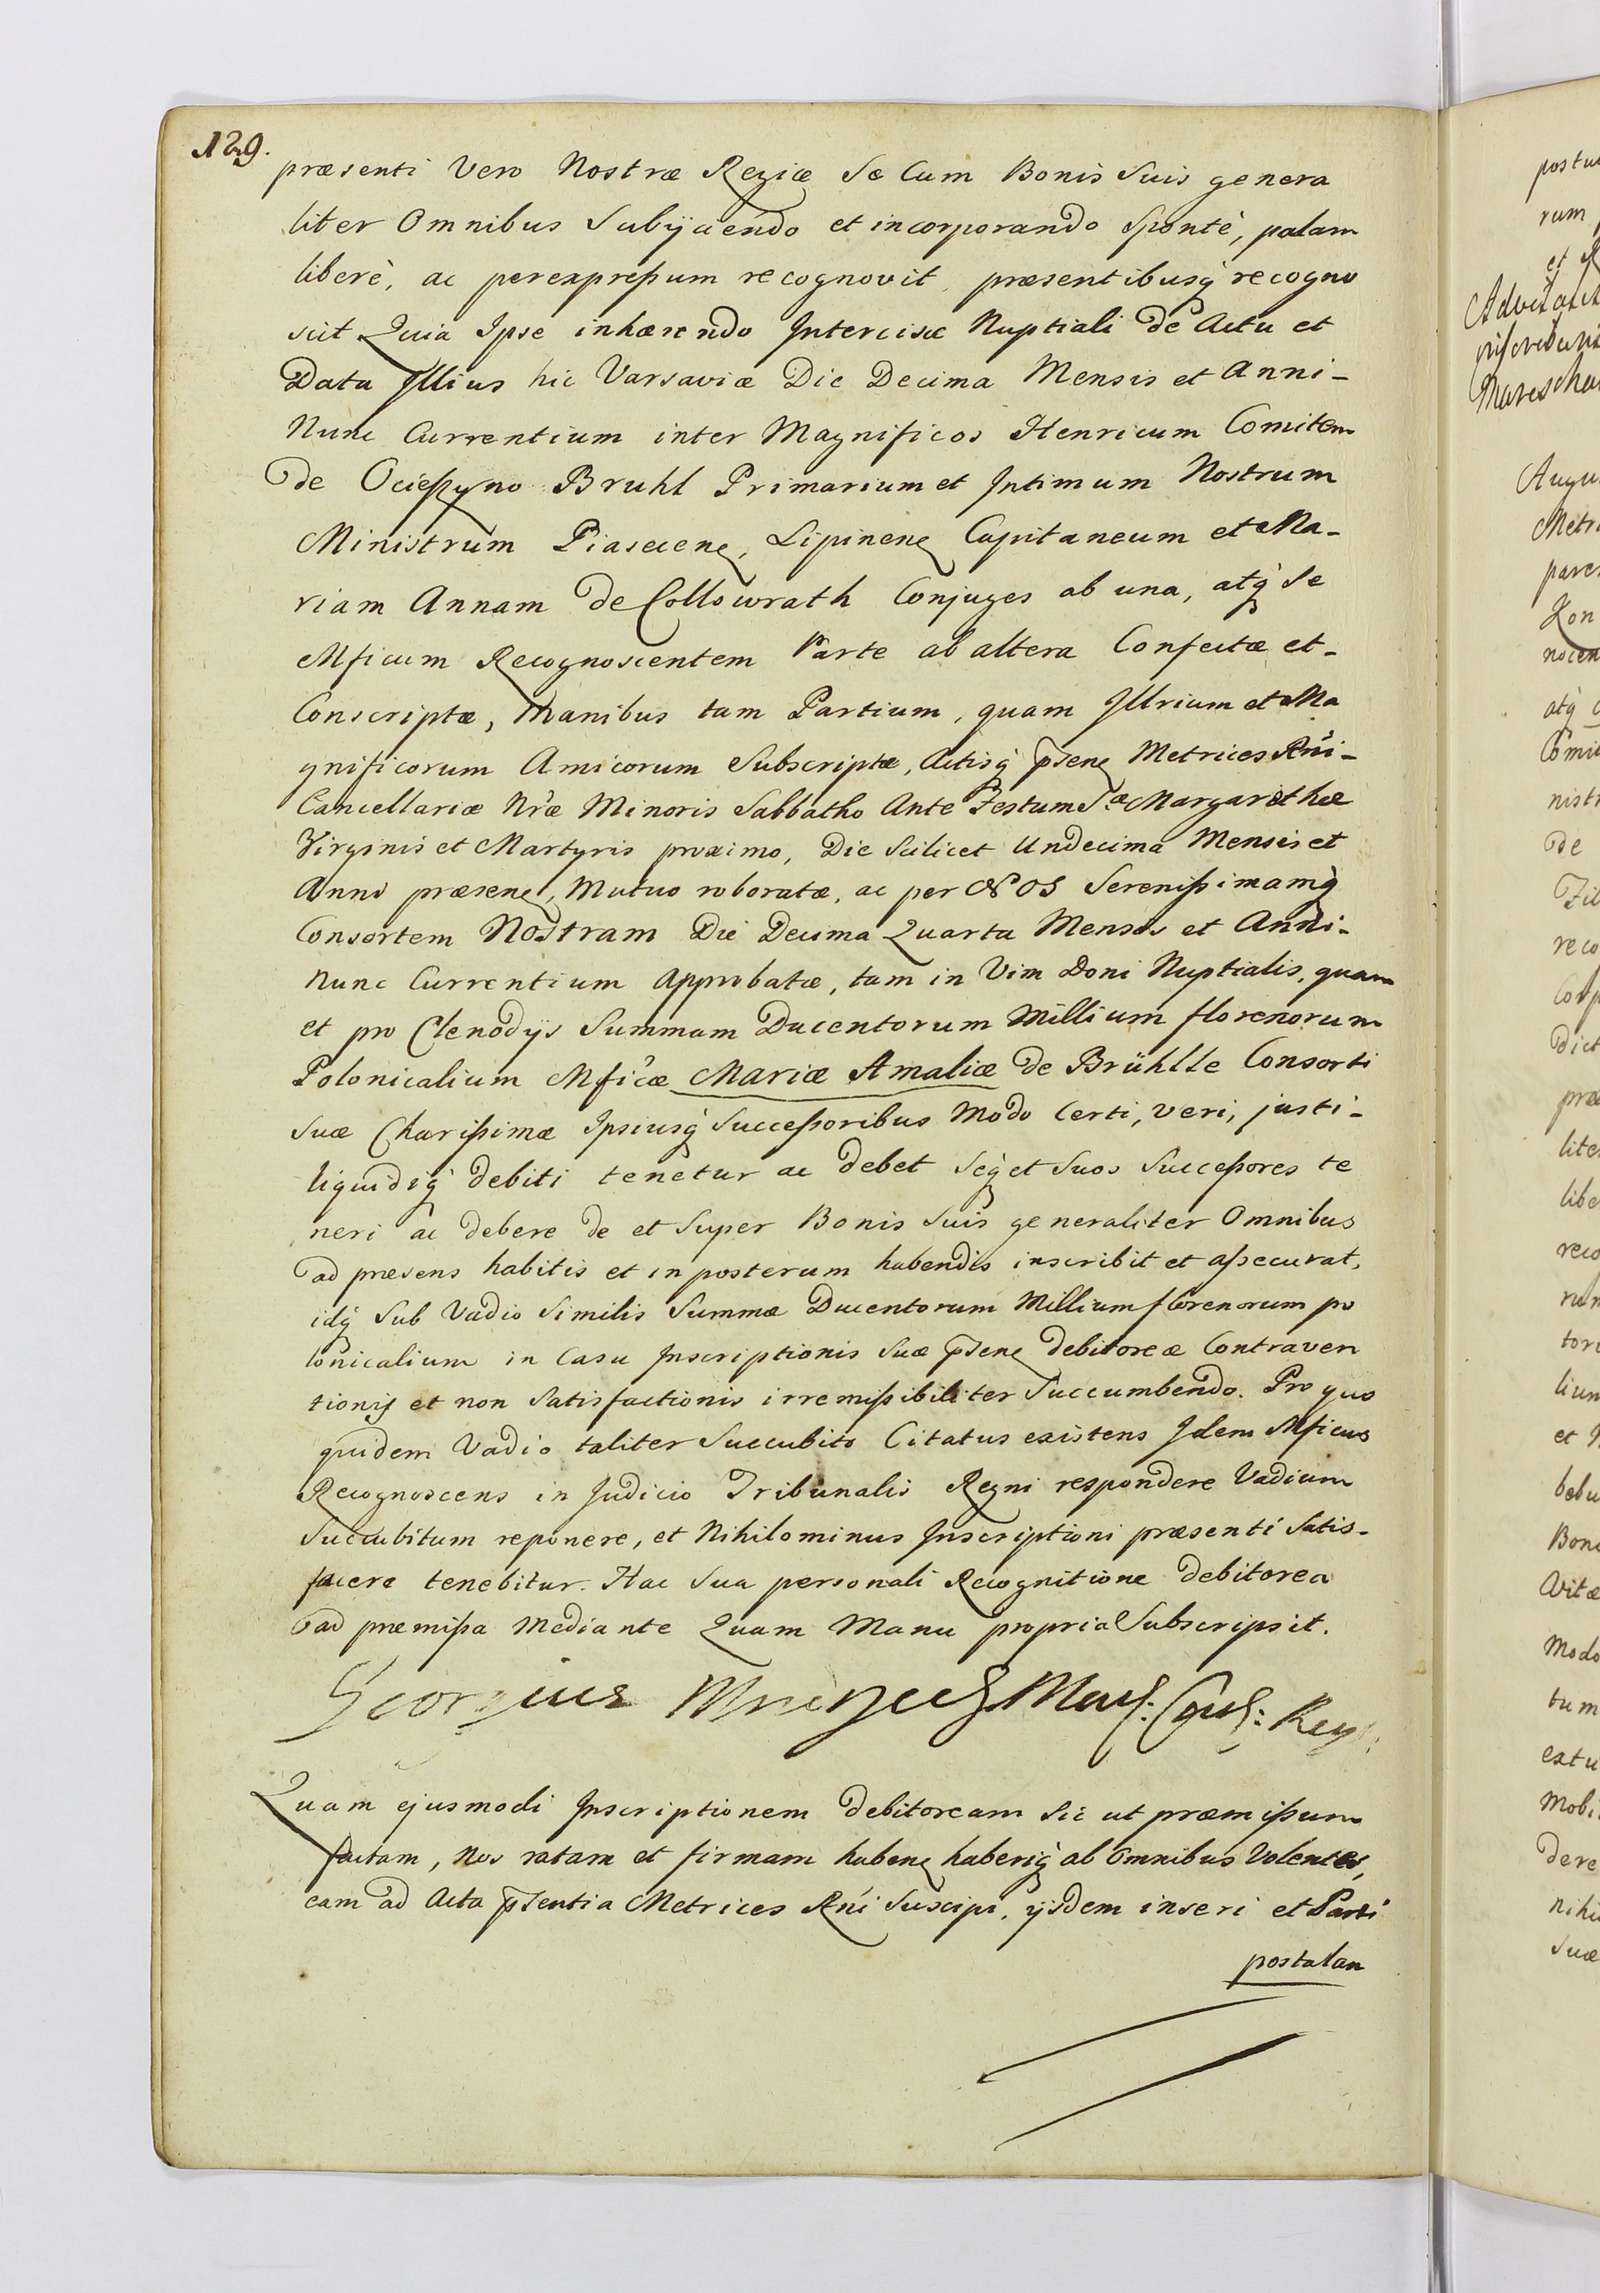 129.
præsenti Vero Nostræ Regiæ Se Cum Bonis Suis genera
liter Omnibus Subijciendo et incorporando Spontè, palam
liberè, ac perexpreſsum recognovit præsentibusq̀ recogno
scit Quia Ipse inhærendo Intercisæ Nuptiali de Actu et
Data Jllius hic Varsaviæ Die Decima Mensis et Anni-
Nunc Currentium inter Magnificos Henricum Comitem
de Ocieszyno Bruhl Primarium et Jntimum Nostrum
Ministrum Piasecenẹ, Lipinenẹ Capitaneum et Ma-
riam Annam de Collowrath Conjuges ab una, atq̀ Se
Mficum Recognoscentem Parte ab altera Confectæ et-
Conscriptæ, Manibus tam Partium, quam Jllrium et Ma
gnificorum Amicorum Subscriptæ, Actisq̀ p̄senẹ Metrices Rni-
Cancellariæ Nræ Minoris Sabbatho Ante Festum Sæ Margarethæ
Virginis et Martyris proximo, Die Scilicet Undecima Mensis et
Anni præsenẹ, Mutuo roboratæ, ac per NOS Sereniſsimamq̀
Consortem Nostram Die Decima Quarta Mensis et Anni-
nunc Currentium Approbatæ, tam in Vim Doni Nuptialis, quam
et pro Clenodijs Summam Ducentorum Millium florenorum
Polonicalium Mficæ Mariæ Amaliæ de Brühlle Consorti
suæ Chariſsimæ Ipsiusq̀ Succeſsoribus Modo Certi, veri, justi-
liquidiq̀ debiti tenetur ac debet Seq̀ et Suos Succeſsores te
neri ac debere de et Super Bonis Suis generaliter Omnibus
ad præsens habitis et in posterum habendis inscribit et aſsecurat,
idq̀ Sub Vadio Similis Summæ Ducentorum Millium florenorum po
lonicalium in Casu Jnscriptionis Suæ p̄senẹ debitoreæ Contraven
tionis et non Satisfactionis irremiſsibiliter Succumbendo. Pro quo
quidem Vadio taliter Succubito Citatus existens Jdem Mficus
Recognoscens in Judicio Tribunalis Regni respondere Vadium
Succubitum reponere, et Nihilominus Jnscriptioni præsenti Satis-
facere tenebitur. Hac Sua personali Recognitione debitorea
ad præmiſsa Mediante Quam Manu propria Subscripsit.
Georgius Mniszech
Quam ejusmodi Jnscriptionem debitoream Sic ut præmiſsum
factam, Nos ratam et firmam habenẹ haberiq̀ ab Omnibus Volentes,
eam ad Acta p̄sentia Metrices Rni Suscipi, ijsdem inseri et Parti
postulan